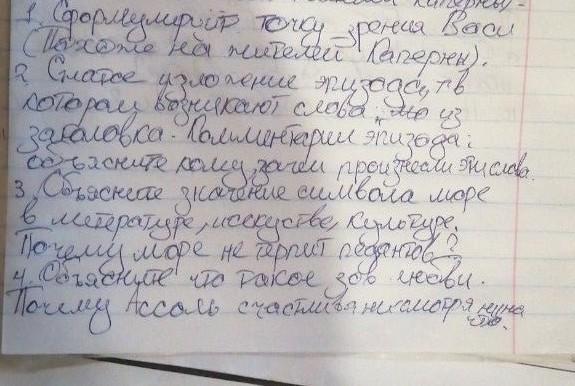 Каперны -
1. Сформулируйте точку зрения Васи
(Похоже на жителей Каперны).
2. Сжатое изложение эпизода, в
котором возникают слова из
заголовка. Комментарии эпизода:
объясните кому, зачем произнесли эти слова.
3. Объясните значение символа море
в литературе, искусстве, культуре.
Почему море не терпит педантов?
4. Объясните что такое зов любви.
Почему Ассоль счастлива несмотря ни на
что.